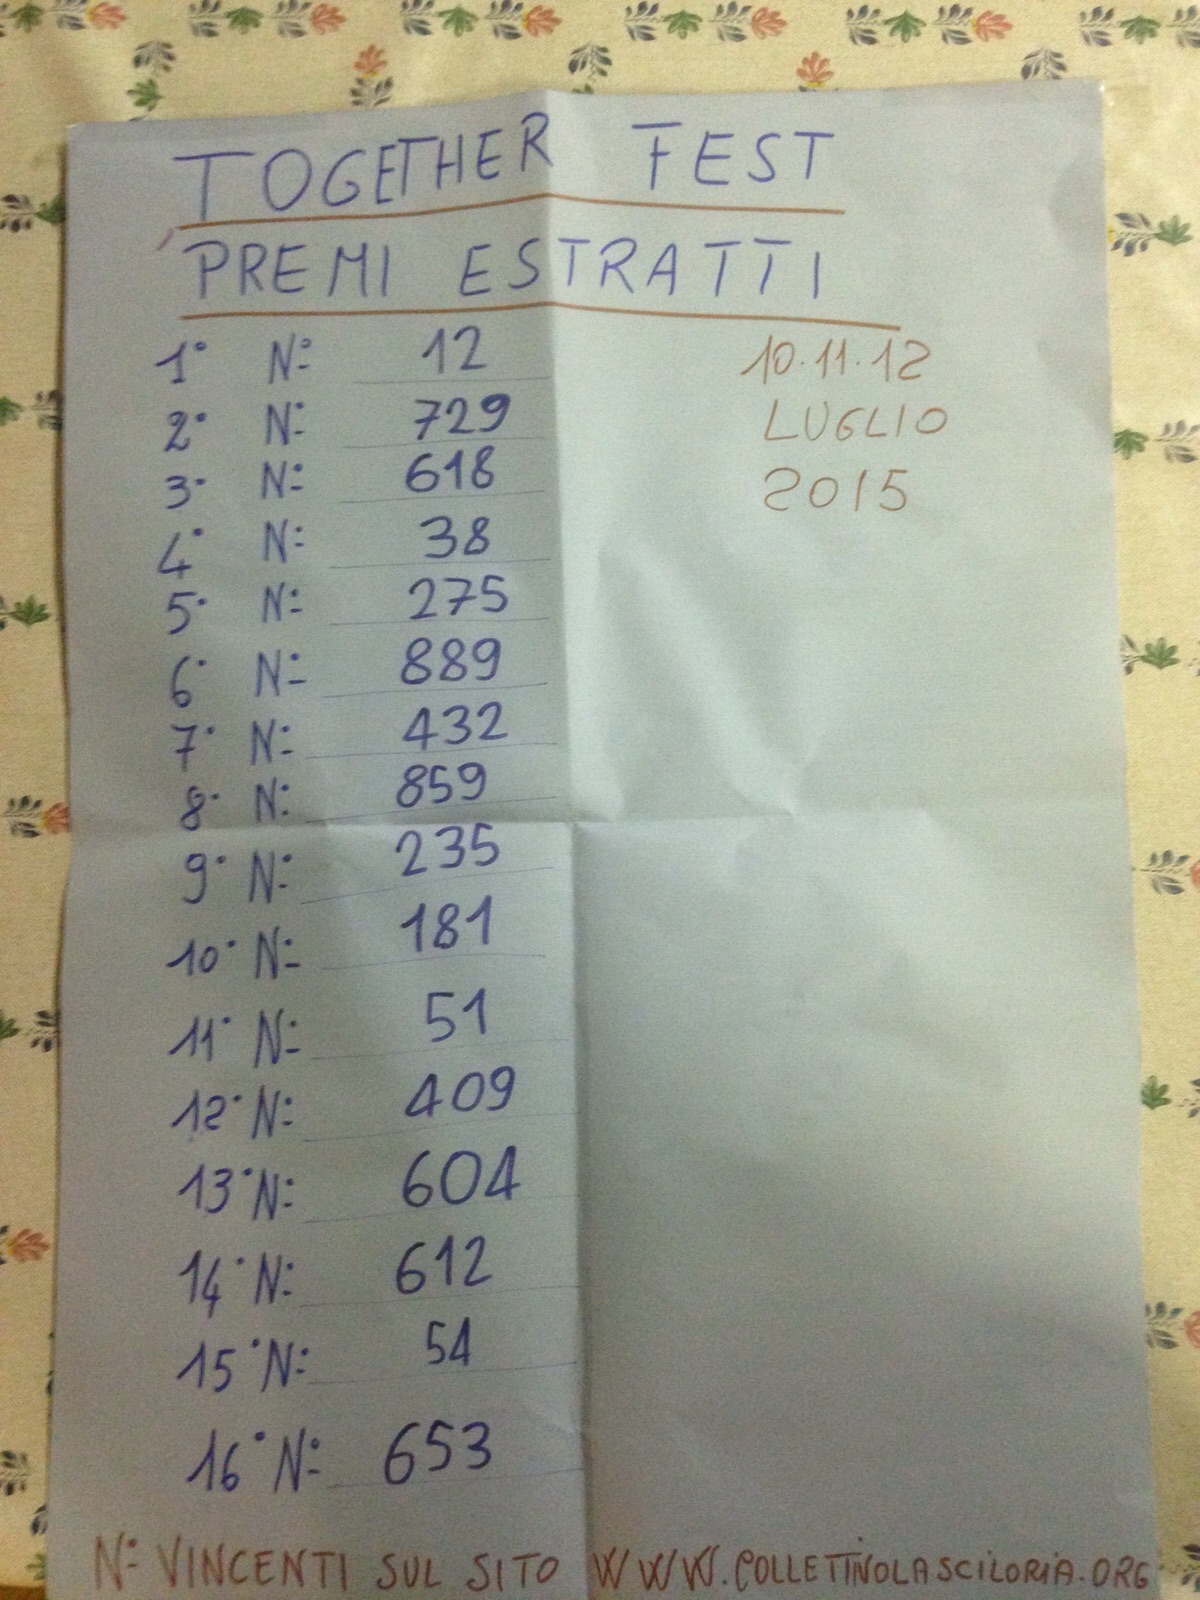 TOGETHER FEST
PREMI ESTRATTI
1° N° 12
2° N° 729
3° N° 618
4° N° 38
5° N° 275
6° N° 889
7° N° 432
8° N° 859
9° N° 235
10° N° 181
11° N° 51
12° N° 409
13° N° 604
14° N° 612
15° N° 54
16° N° 653
10.11.12
LUGLIO
2015
N° VINCENTI SUL SITO WWW.COLLETTIVOLASCILORIA.ORG